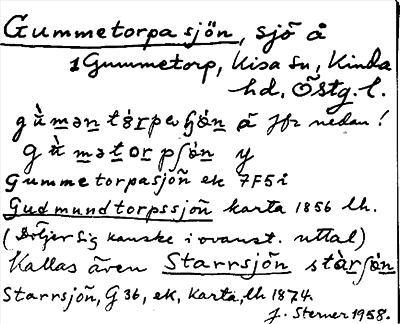 Gummetorpasjön, sjö å
1 Gummetorp, Kisa sn, Kinda
hd, Östg. l.
gù̀məntórpaʃö́n å Jfr nedan!
gù̀mətorpʃö̀n y
Gummetorpasjön ek 7F5i
Gudmundtorpssjön karta 1856 lh.
(Döljer sig kanske i ovanst. uttal)
Kallas även Starrsjön stàrʃö̀n
Starrsjön, G 36, ek, karta, lh 1874.
J. Sterner 1958.